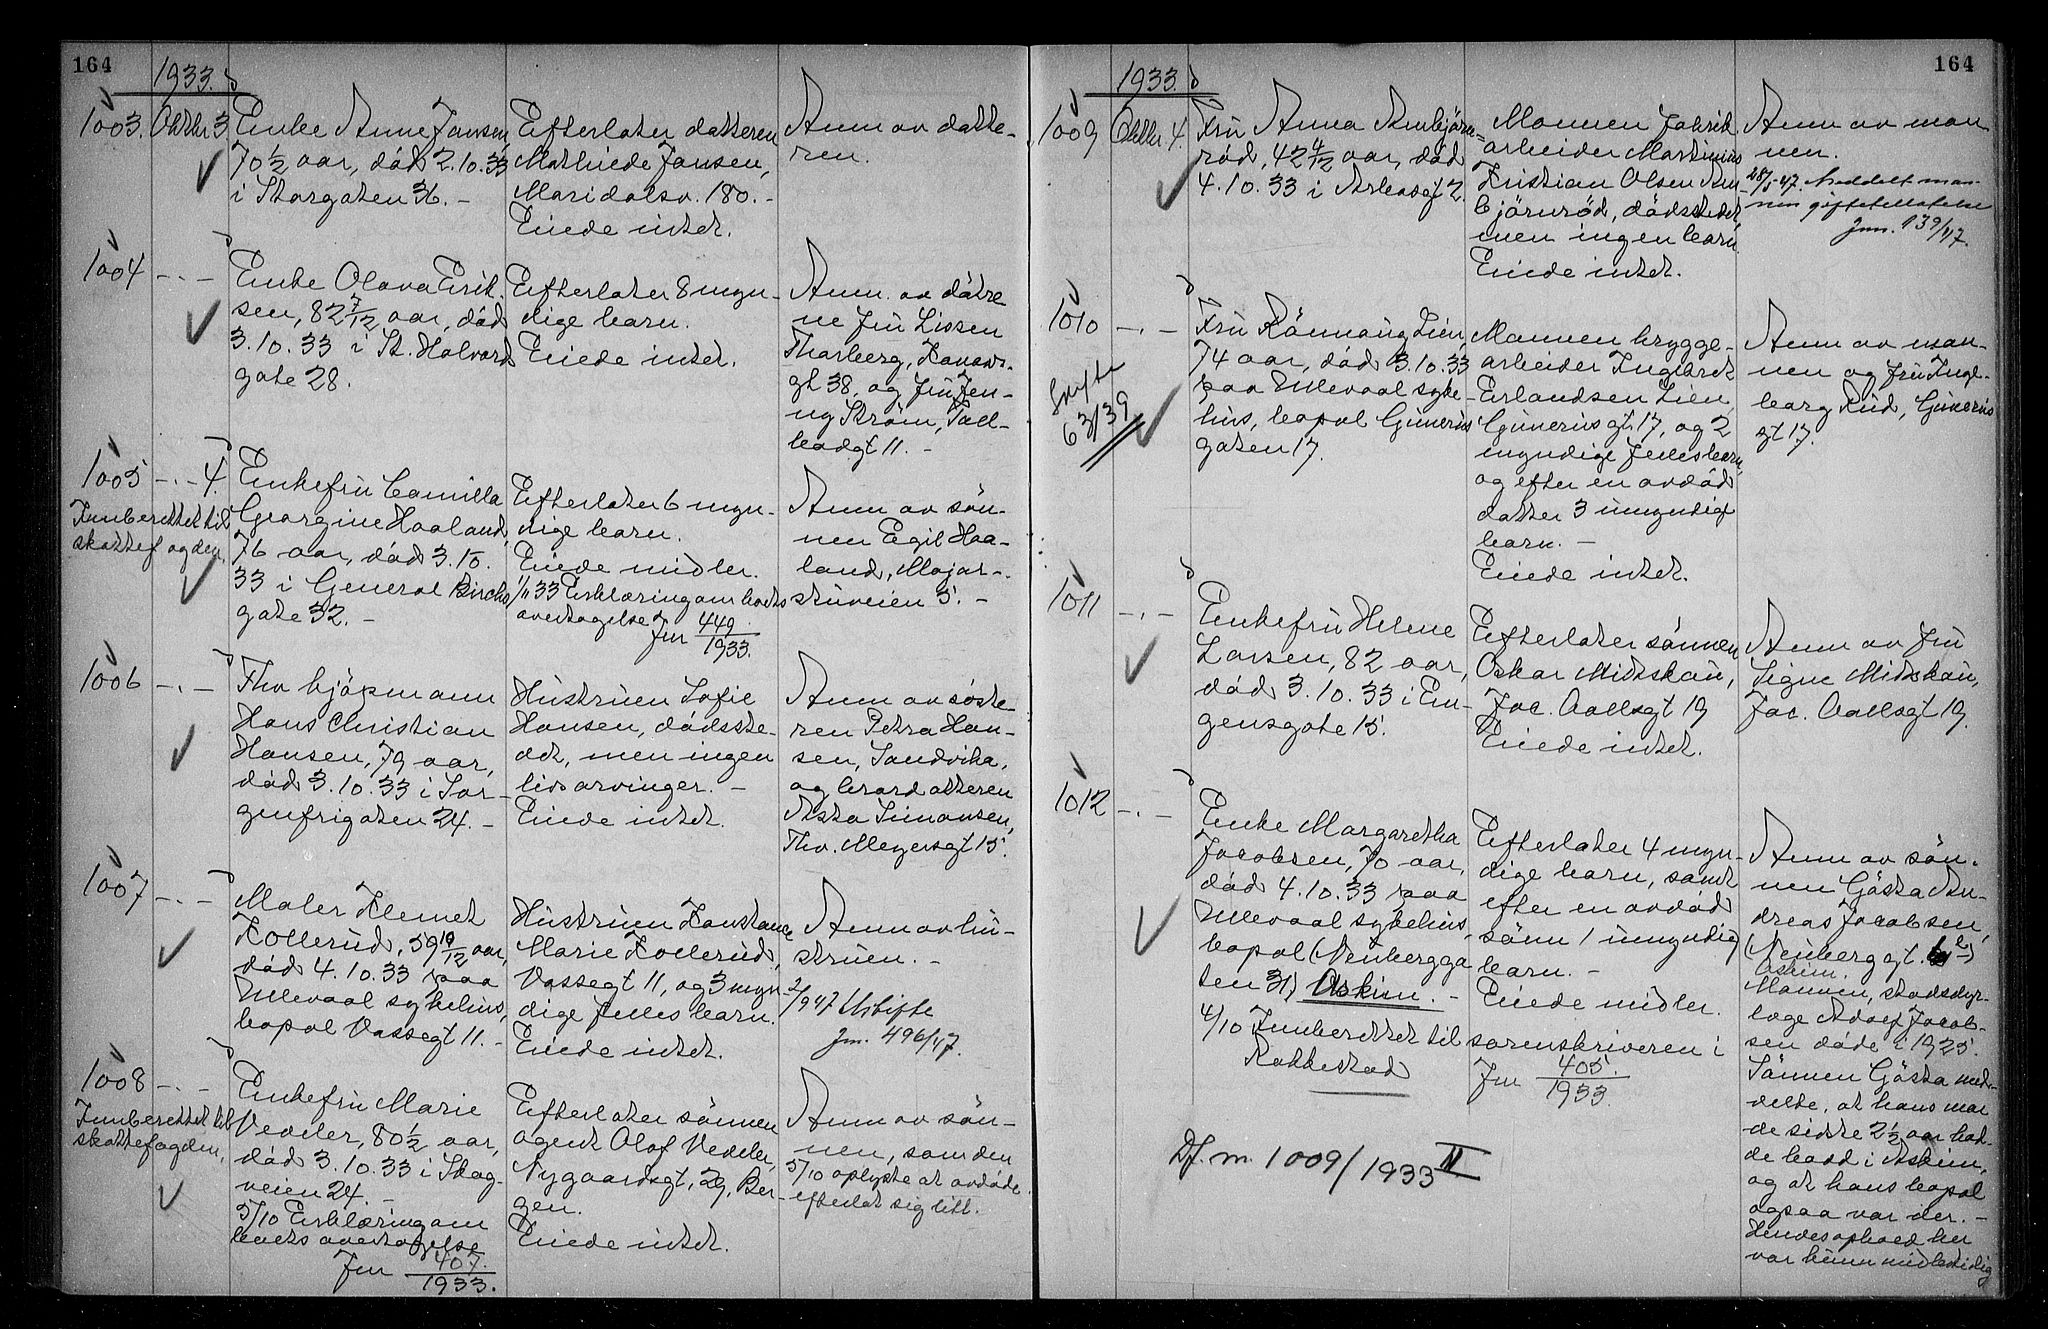 164
1933.
1003. Oktbr 3.
Enke Anne Jansen,
70 1/2 aar, död 2.10.33
i Storgaten 36. -
Efterlater datteren
Mathilde Jansen,
Maridalsv. 180. -
Eiede intet.
Anm av datte-
ren.
1004 - . -
Enke Olava Erik-
sen, 82 7/12 aar, död
3.10.33 i St. Halvards
gate 28.
Efterlater 8 myn-
dige barn.
Eiede intet.
Anm. av dötre
ne fru Lissen
Thorberg,
gt 38, og fru Jen-
ny Ström,
gt 11. -
1005 - . - 4.
Innberettet til
skattefogden.
Enkefru Camilla
Georgine Haaland,
76 aar, död 3.10.
33 i General Birchs
gate 32. -
Efterlater 6 myn-
dige barn.
Eiede midler.
1/11 33 Erklæring om boets
overtagelse
Jnr 449/1933.
Anm av sön-
nen Egil Haa-
land, Major-
stuveien 5. -
1006 - . -
Fhv kjöpmann
Hans Christian
Hansen, 79 aar,
död 3.10.33 i Sor-
genfrigaten 24. -
Hustruen Sofie
Hansen, dödsste-
det, men ingen
livsarvinger. -
Eiede intet.
Anm av söste
ren Petra Han-
sen, Sandvika,
og brordatteren
Asta Simonsen,
Thv. Meyersgt 15.
1007 - . -
Maler Klemet
Kollerud, 59 10/12 aar,
död 4.10.33 paa
Ullevaal sykehus,
bopæl Vossegt 11. -
Hustruen Konstance
Marie Kollerud,
Vossegt 11, og 3 myn-
dige felles barn.
Eiede intet.
Anm av hu-
struen. -
2/9 47 Uskifte
Jnr. 496/47.
1008 - . -
Innberettet til
skattefogden.
Enkefru Marie
Vedeler, 80 1/2 aar,
död 3.10.33 i Skog-
veien 24. -
5/10 Erklæring om
boets overtagelse
Jnr 407/1933.
Efterlater sönnen
agent Olaf Vedeler,
Nygaardsgt, 29, Ber-
gen.
Eiede intet.
Anm av sön-
nen, som den
5/10 oplyste at avdöde
efterlot sig litt.
164
1933.
1009 Oktbr. 4.
Fru Anna Arnbjörn-
röd, 42 4/12 aar, död
4.10.33 i 2.
Mannen fabrik
arbeider Martinius
Kristian Olsen Arn-
björnröd, dödsstedet
men ingen barn.
Eiede intet.
Anm av man
nen.
28/5-47. Meddelt man-
nen giftetillatelse
Jnr. 139/47.
1010 - . -
Skifte
63/39
Fru Rönnaug Lien,
74 aar, död 3.10.33
paa Ullevaal syke-
hus, bopæl Gunerius
gaten 17.
Mannen brygge-
arbeider Ingebret
Erlandsen Lien,
Gunerius gt. 17, og 2
myndige felles barn,
og efter en avdöd
datter 3 umyndige
barn. -
Eiede intet.
Anm av man-
nen og fru Inge-
borg Rud, Gunerius
gt 17.
1011 - . -
Enkefru Helene
Larsen, 82 aar,
död 3.10.33 i En-
gensgate 15.
Efterlater sönnen
Oskar Midtskau,
Jac. Aallsgt 19
Eiede intet.
Anm av fru
Signe Midtskau,
Jac. Aallsgt 19.
1012 - . -
Enke Margaretha
Jacobsen, 70 aar,
död 4.10.33 paa
Ullevaal sykehus,
bopæl (Neubergga
ten 31) Askim. -
4/10 Innberettet til sorenskriveren i
Rakkestad
Jnr 405/1933.
Efterlater 4 myn-
dige barn, samt
efter en avdöd
sönn 1 umyndig
barn. -
Eiede midler.
Anm av sön-
nen Gösta An-
dreas Jacobsen,
(Neuberggt.
Askim.
Mannen, stadsdyr-
læge Adolf Jacob-
sen döde i 1925.
Sönnen Gösta med-
delte, at hans mor
de sidste 2 1/2 aar had-
de bodd i Askim,
og at hans bopæl
ogsaa var der. -
Hendes ophold her
var kunn midlertidig
Df. nr 1009/1933 II